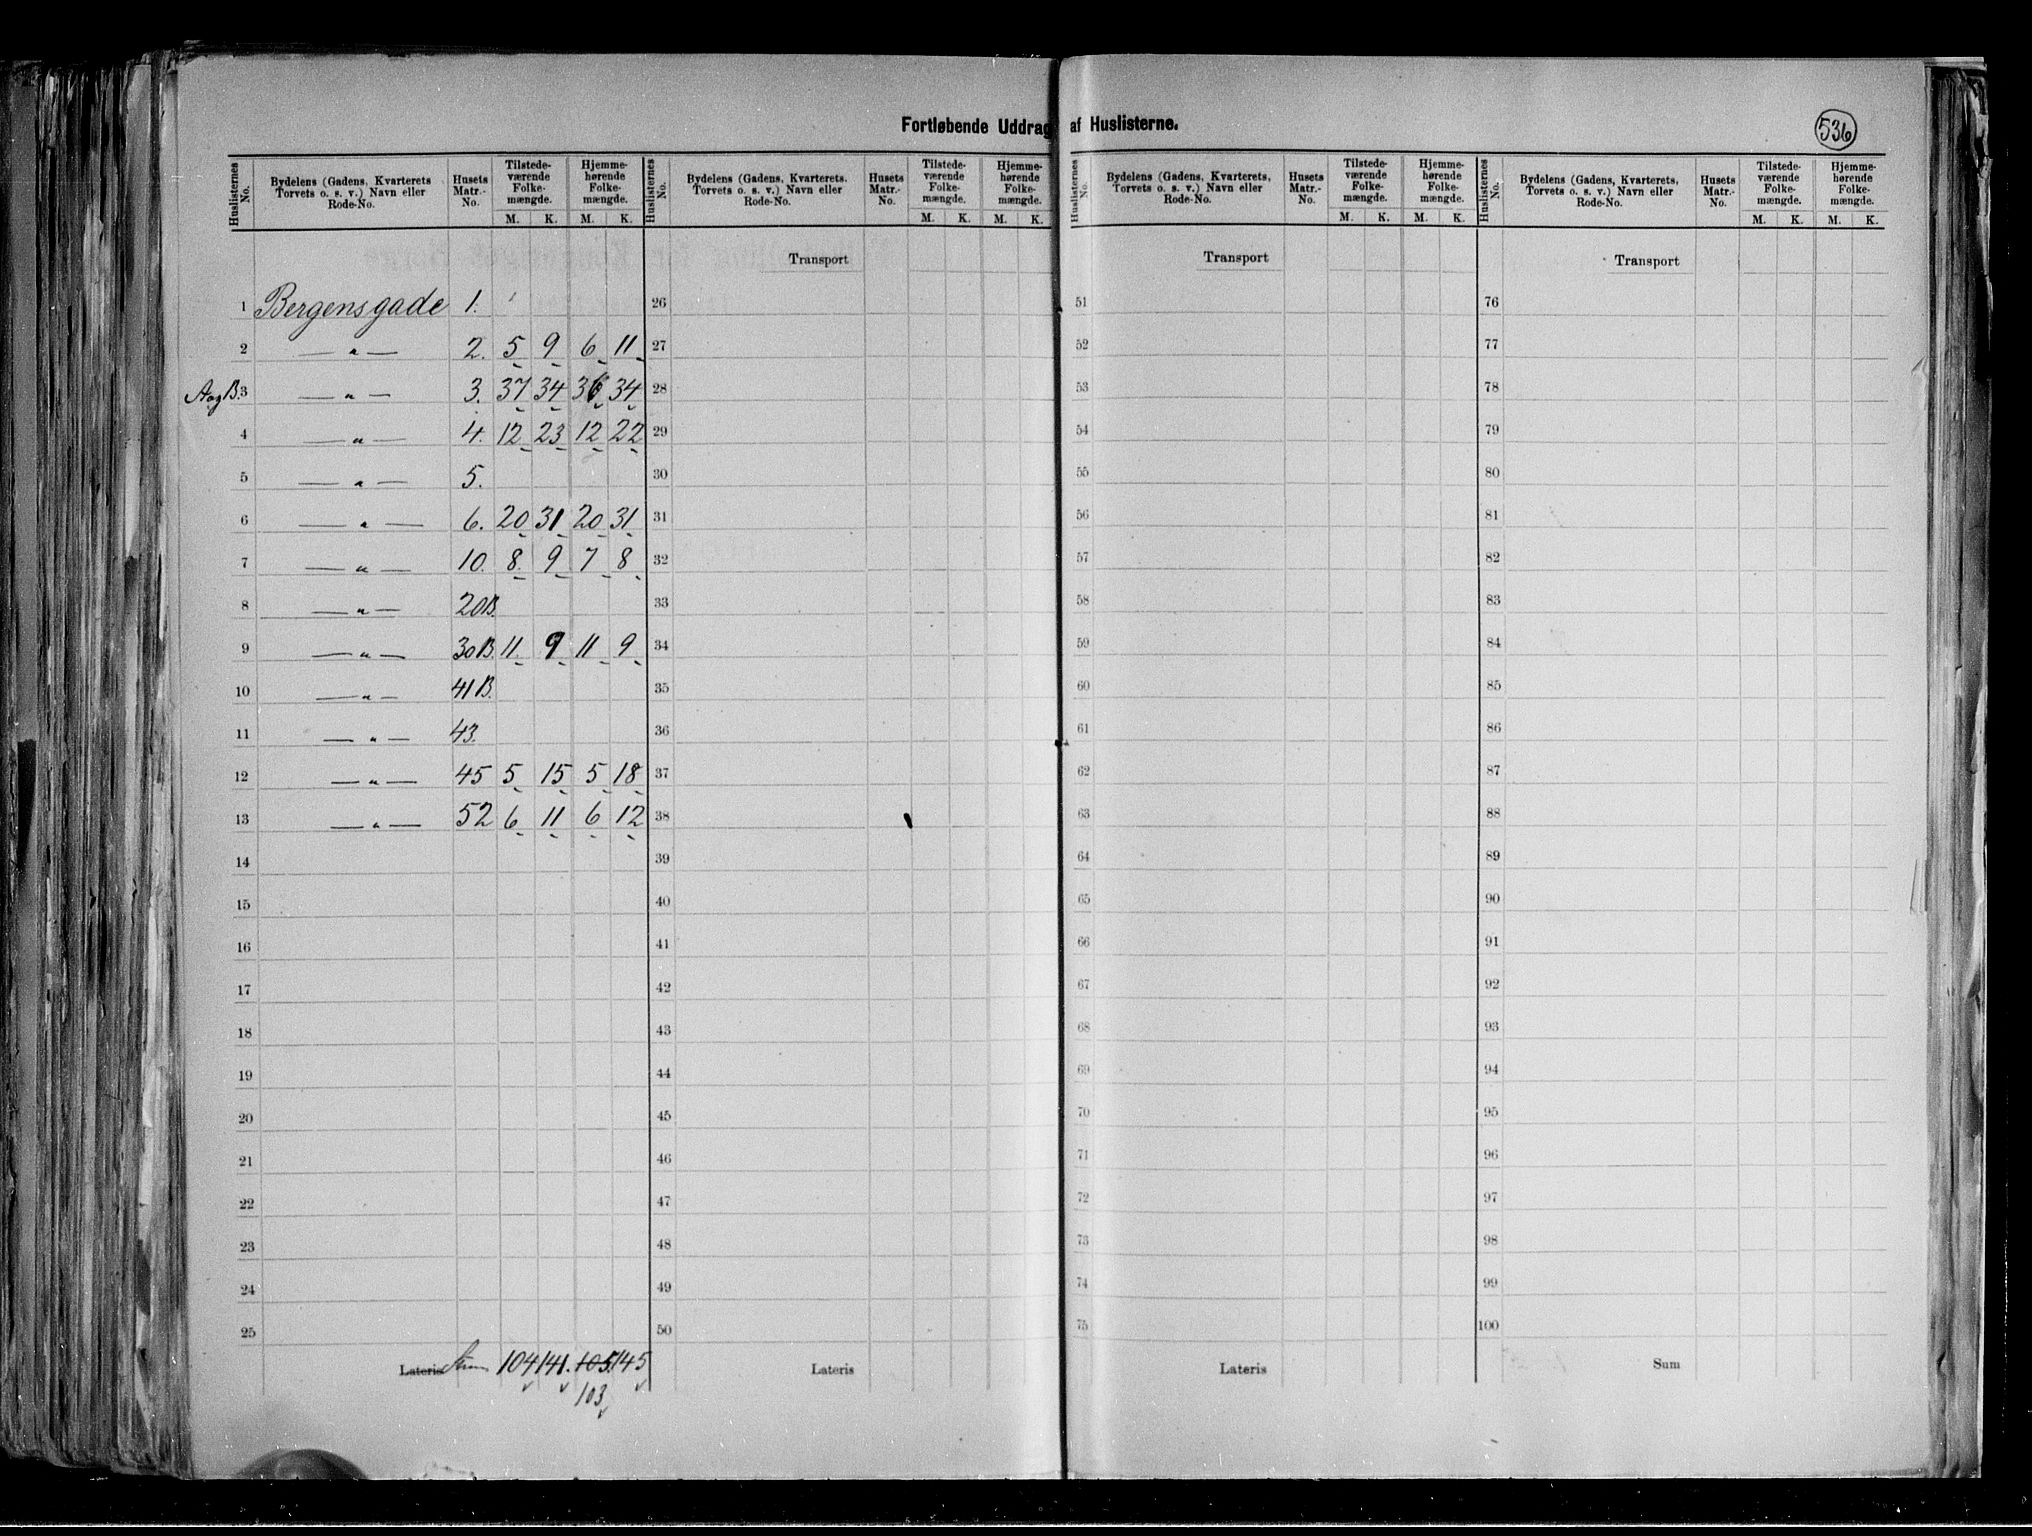 Fortløbende Uddrag af Huslisterne.
536
Huslisternes No. Bydelens (Gadens, Kvarterets Torvets o. s. v.) Navn eller Rode-No. Husets Matr.-No. Tilstede-værende Folke-mængde. M. K. Hjemme-hørende Folke-mængde. M. K.
Huslisternes No. Bydelens (Gadens, Kvarterets. Torvets o. s. v.) Navn eller Rode-No. Husets Matr.-No. Tilstede-værende Folke-mængde. M. K. Hjemme-hørende Folke-mængde. M. K.
Huslisternes No. Bydelens (Gadens, Kvarterets, Torvets o. s. v.) Navn eller Rode-No. Husets Matr.-No. Tilstede-værende Folke-mængde. M. K. Hjemme-hørende Folke-mængde. M. K.
Huslisternes No. Bydelens (Gadens, Kvarterets, Torvets o. s. v.) Navn eller Rode-No. Husets Matr.-No. Tilstede-værende Folke-mængde. M. K. Hjemme-hørende Folke-mængde. M. K.
Transport Transport Transport
1 Bergensgade 1. 26 51 76
2 — " — 2. 5 9 6 11 27 52 77
A og B. 3 — " — 3. 37 34 36 34 28 53 78
4 — " — 4. 12 23 12 22 29 54 79
5 — " — 5. 30 55 80
6 — " — 6. 20 31 20 31 31 56 81
7 — " — 10. 8 9 7 8 32 57 82
8 — " — 20B. 33 58 83
9 — " — 30B. 11 9 11 9 34 59 84
10 — " — 41B. 35 60 85
11 — " — 43. 36 61 86
12 — " — 45 5 15 5 18 37 62 87
13 — " — 52 6 11 6 12 38 63 88
14 39 64 89
15 40 65 90
16 41 66 91
17 42 67 92
18 43 68 93
19 44 69 94
20 45 70 95
21 46 71 96
22 47 72 97
23 48 73 98
24 49 74 99
25 50 75 100
Lateris Sum 104 141. 105. 145 Lateris Lateris Sum
103